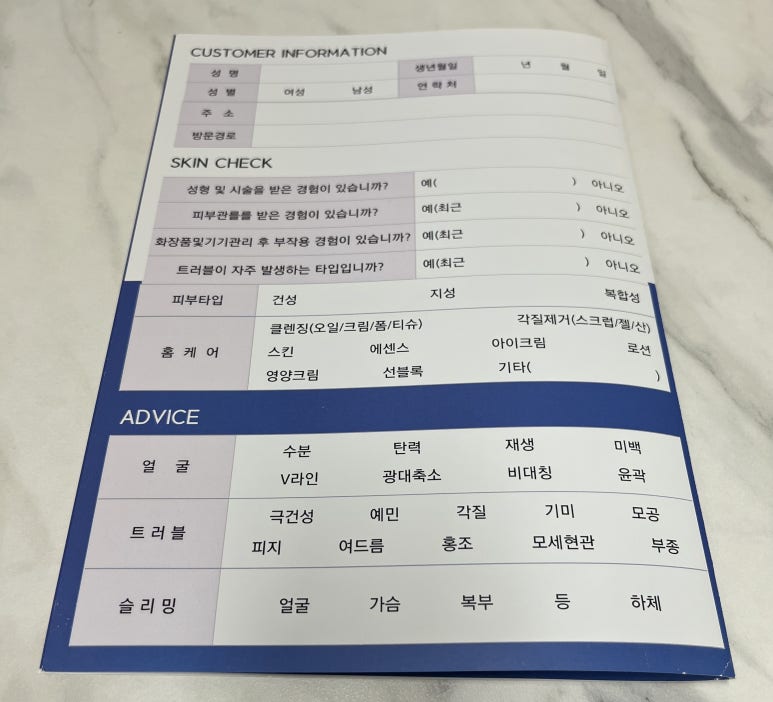 CUSTOMER INFORMATION
성 명 생년월일 년 월 일
성 별 여성 남성 연락처
주 소
방문경로
SKIN CHECK
성형 및 시술을 받은 경험이 있습니까? 예( ) 아니오
피부관를를 받은 경험이 있습니까? 예(최근 ) 아니오
화장품및기기관리 후 부작용 경험이 있습니까? 예(최근 ) 아니오
트러블이 자주 발생하는 타입입니까? 예(최근 ) 아니오
피부타입 건성 지성 복합성
클렌징(오일/크림/폼/티슈) 각질제거(스크럽/젤/산)
홈 케 어 스킨 에센스 아이크림 로션
영양크림 선블록 기타( )
ADVICE
얼 굴 수분 탄력 재생 미백
V라인 광대축소 비대칭 윤곽
트 러 블 극건성 예민 각질 기미 모공
피지 여드름 홍조 모세현관 부종
슬 리 밍 얼굴 가슴 복부 등 하체